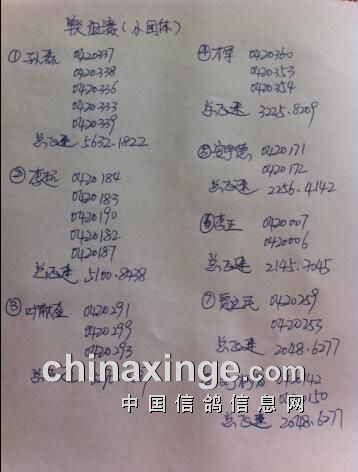 联班赛（小团体）
① 孙磊 0420337
0420338
0420336
0420333
0420339
总飞速 5632.1822
② 李起 0420184
0420183
0420190
0420182
0420187
总飞速 5100.8438
③ 叶 0420291
0420299
0420293
④ 0420360
0420353
0420354
总飞速 3225.8209
⑤ 安宇德 0420171
0420172
总飞速 2256.4142
⑥ 李正 0420007
0420006
总飞速 2145.7045
⑦ 0420259
0420253
总飞速 2048.6277
总飞速 2048.6277
chinaxinge.com
中国信鸽信息网